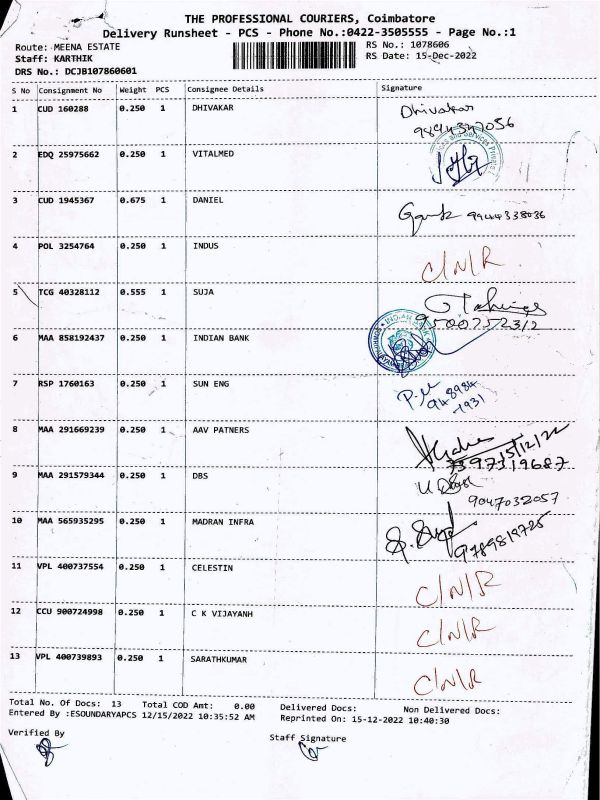 THE PROFESSIONAL COURIERS, Coimbatore
Delivery Runsheet - PCS - Phone No.:0422-3505555 - Page No.:1
Route: MEENA ESTATE
Staff: KARTHIK
DRS No.: DCJB107860601
RS No.: 1078606
RS Date: 15-Dec-2022
S No Consignment No Weight PCS Consignee Details Signature
1 CUD 160288 0.250 1 DHIVAKAR Dhivakar
2 EDQ 25975662 0.250 1 VITALMED
3 CUD 1945367 0.675 1 DANIEL 9944338036
4 POL 3254764 0.250 1 INDUS C/N/R
5 TCG 40328112 0.555 1 SUJA
9500752312
6 MAA 858192437 0.250 1 INDIAN BANK INDIAN BANK
7 RSP 1760163 0.250 1 SUN ENG
948984
7931
8 MAA 291669239 0.250 1 AAV PATNERS 15/12/22
7397319687
9 MAA 291579344 0.250 1 DBS
9047032057
10 MAA 565935295 0.250 1 MADRAN INFRA
9789819725
11 VPL 400737554 0.250 1 CELESTIN C/N/R
12 CCU 900724998 0.250 1 C K VIJAYANH C/N/R
13 VPL 400739893 0.250 1 SARATHKUMAR C/N/R
Total No. Of Docs: 13 Total COD Amt: 0.00 Delivered Docs: Non Delivered Docs:
Entered By :ESOUNDARYAPCS 12/15/2022 10:35:52 AM Reprinted On: 15-12-2022 10:40:30
Verified By
Staff Signature